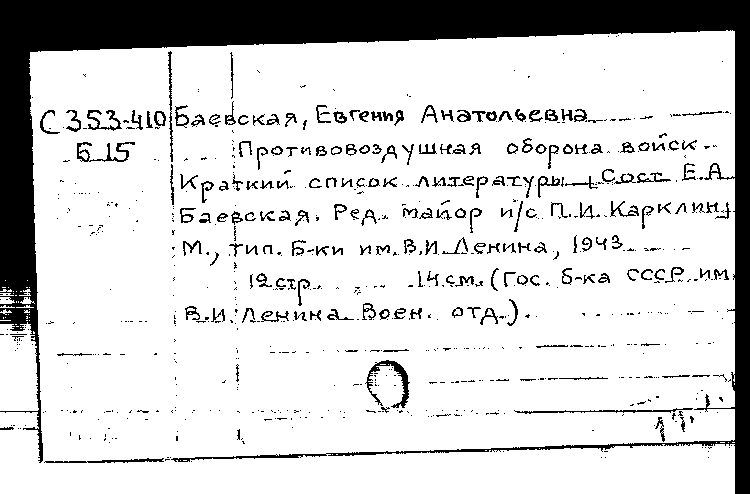 С353-410 Баевская, Евгения Анатольевна
Б15 Противовоздушная оборона войск.
Краткий список литературы. Сост. Е.А.
Баевская. Ред. майор и/с П.И. Карклин,
М., тип. Б-ки им. В.И. Ленина, 1943
12 стр. 14 см. (Гос. б-ка СССР им.
В.И. Ленина. Воен. отд.).